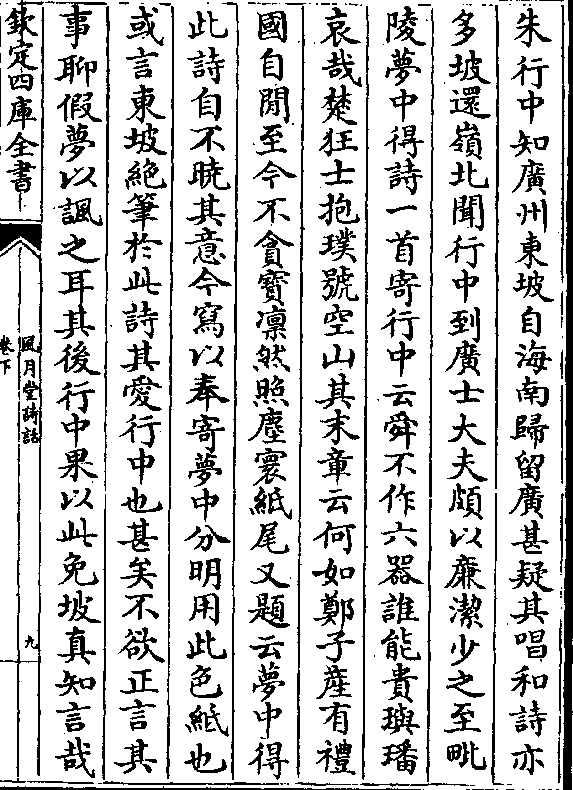 朱行中知廣州東坡自海南歸留廣甚疑其唱和詩亦
多坡還嶺北聞行中到廣士大夫頗以廉潔少之至毗
陵夢中得詩一首寄行中云舜不作六器誰能貴璵璠
哀哉楚狂士抱璞號空山其末章云何如鄭子產有禮
國自閒至今不貪寶凛然照塵寰紙尾又題云夢中得
此詩自不曉其意今寫以奉寄夢中分明用此色紙也
或言東坡絶筆於此詩其愛行中也甚矣不欲正言其
事聊假夢以諷之耳其後行中果以此免坡真知言哉
欽定四庫全書
風月堂詩話
卷下
九